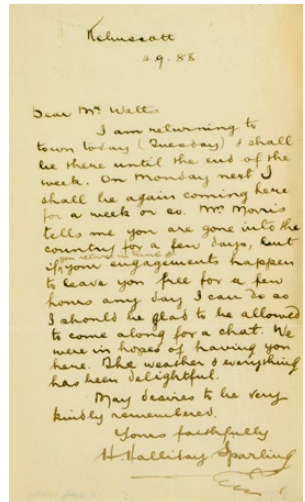 Kelmscott
4.9.88
Dear Mr. Watts
I am returning to
town today (Tuesday) & shall
be there until the end of the
week. On Monday next I
shall be again coming here
for a week or so. Mr. Morris
tells me you are gone into the
country for a few days, but
you return in time &
if your engagements happen
to leave you free for a few
hours any day I can do so
I should be glad to be allowed
to come along for a chat. We
were in hopes of having you
here. The weather & everything
has been delightful.
May desires to be very
kindly remembered.
Yours faithfully
H. Halliday Sparling